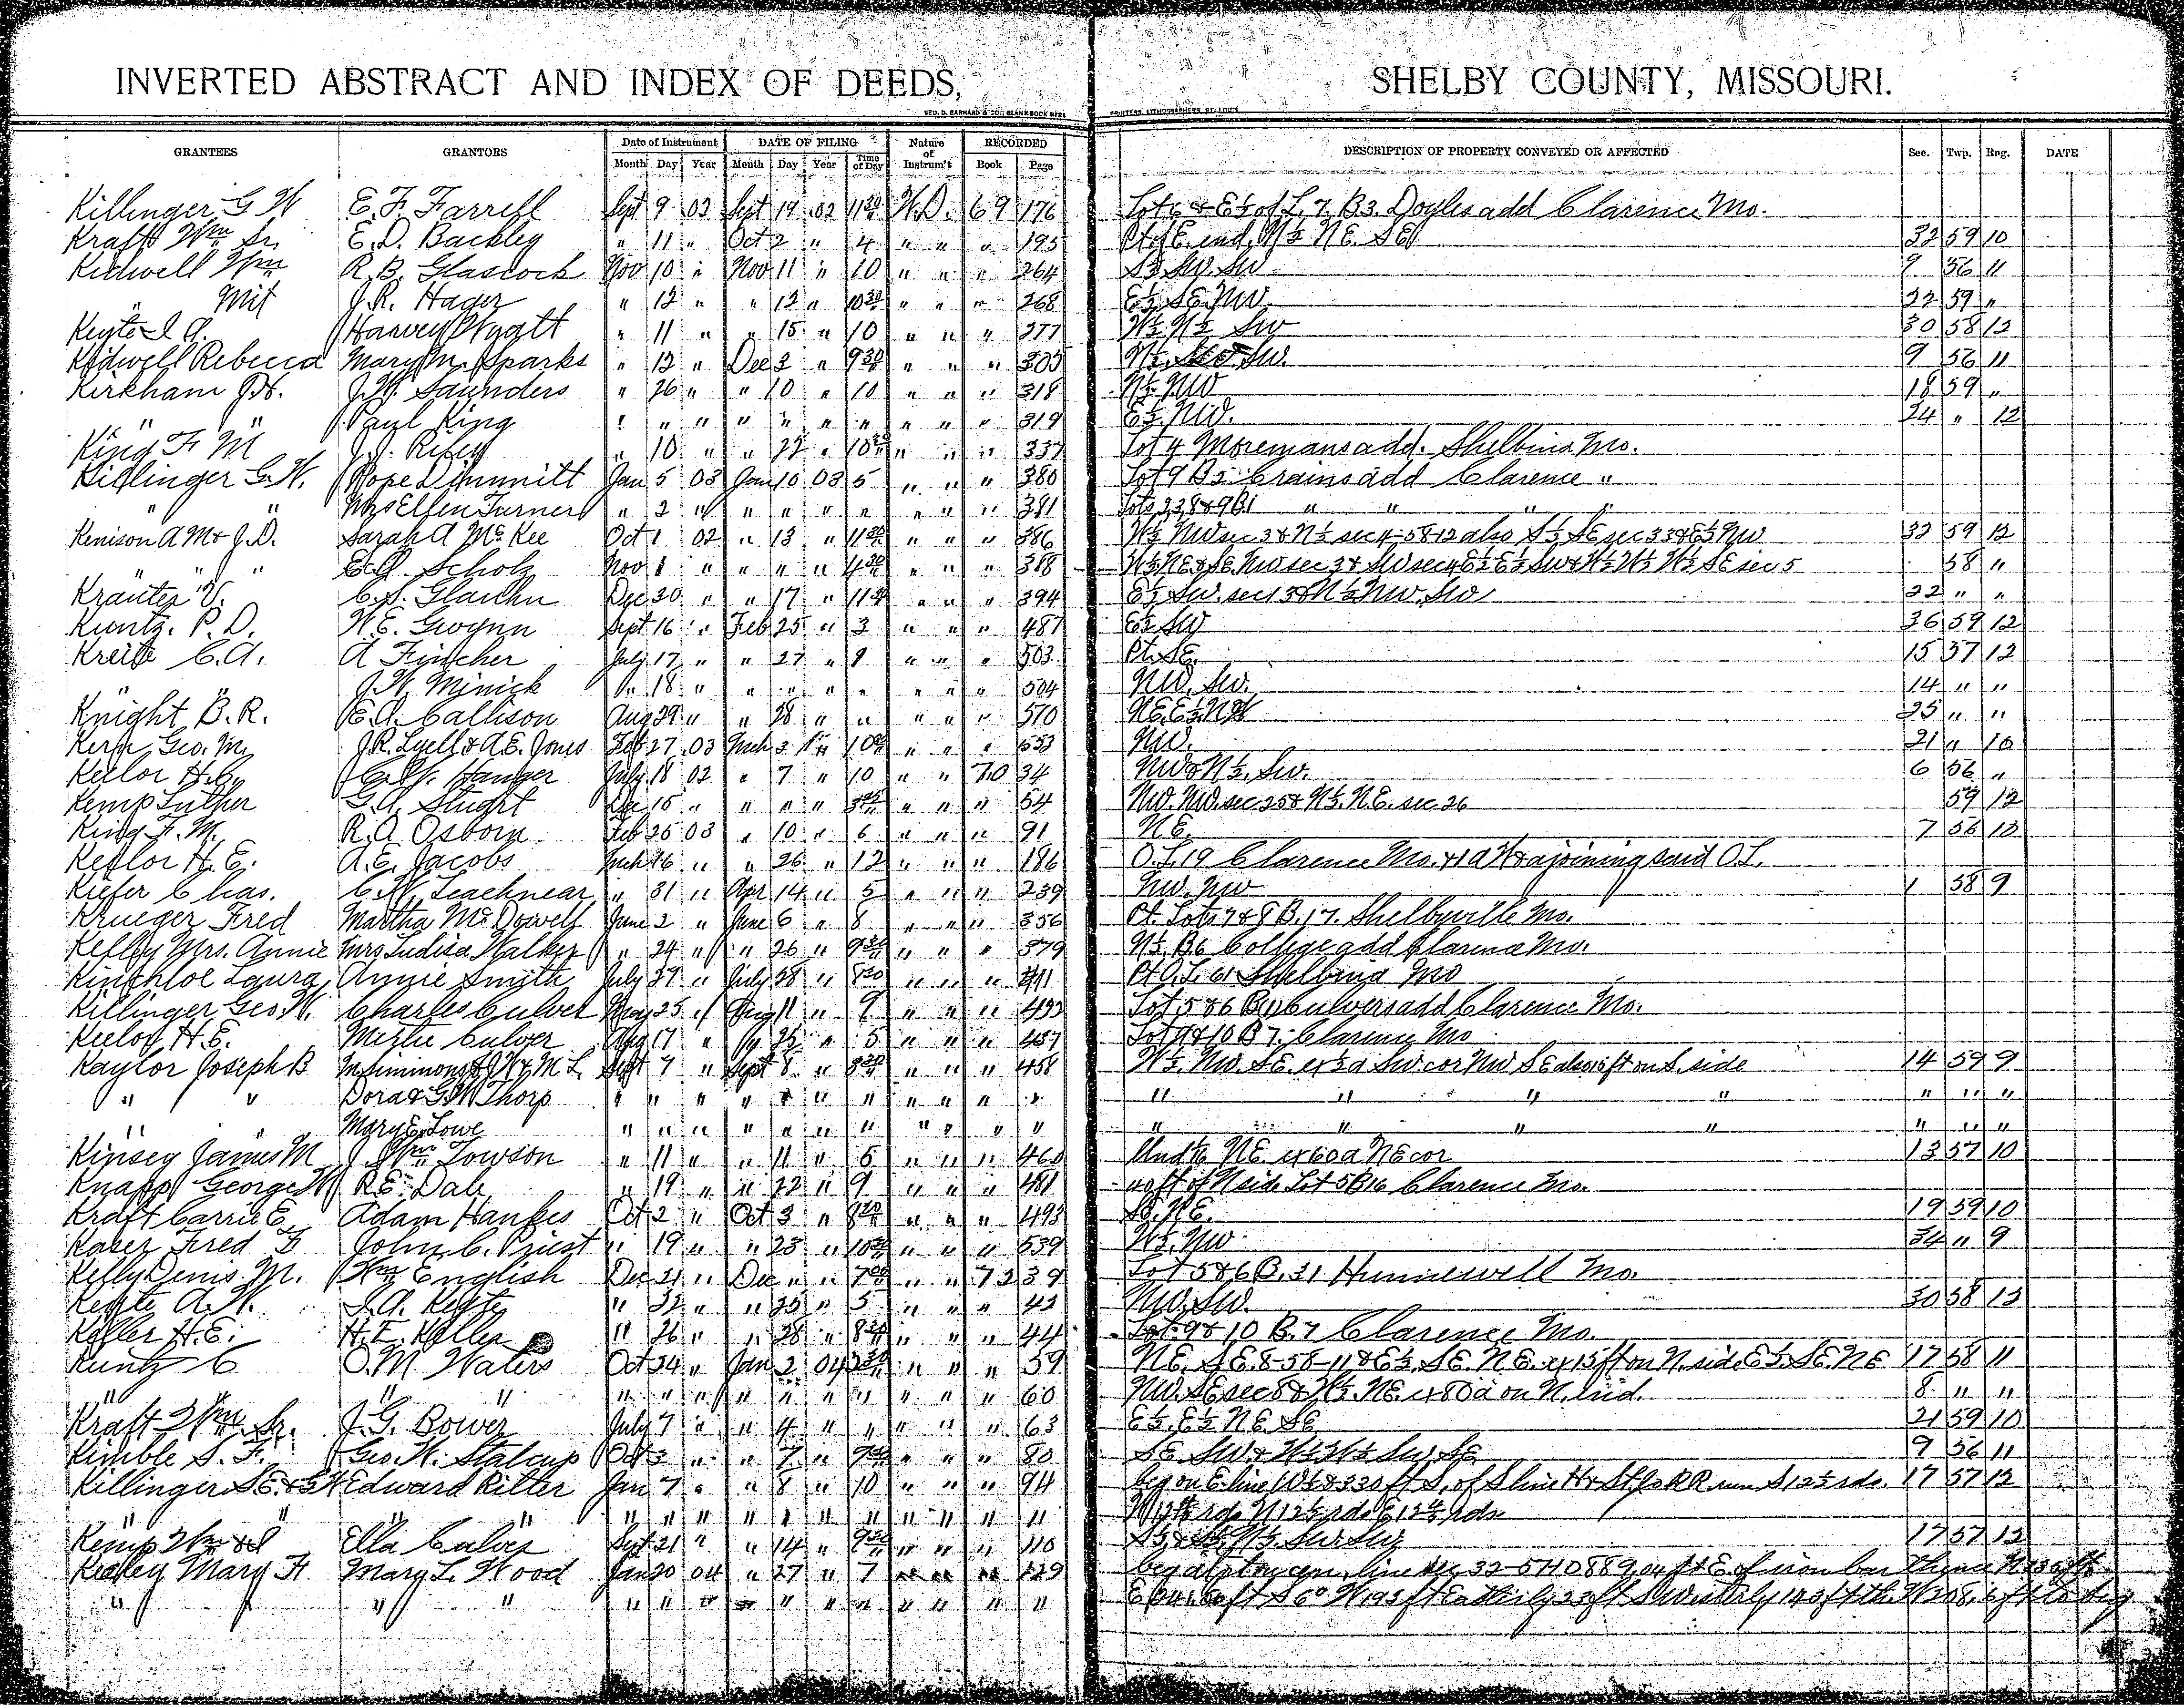 INVERTED ABSTRACT AND INDEX OF DEEDS, SHELBY COUNTY, MISSOURI.
GEO. D. BARNARD & CO., BLANK BOOK MFRS PRINTERS, LITHOGRAPHERS, ST. LOUIS
GRANTEES GRANTORS Date of Instrument DATE OF FILING Nature of Instrum't RECORDED DESCRIPTION OF PROPERTY CONVEYED OR AFFECTED Sec. Twp. Rng. DATE
Month Day Year Month Day Year Time of Day Book Page
Killinger G W E. F. Farrell Sept 9 02 Sept 19 02 11 30 W.D. 69 176 Lot 6 & E½ of L. 7. B3. Doyles add Clarence Mo.
Kraft Wm Sr. E. D. Buckley " 11 " Oct 2 " 4 " " " 195 Pt of E. end, N½ NE. SE 32 59 10
Kidwell Wm R. B. Glascock Nov 10 " Nov 11 " 10 " " " 264 S½ SW. SW 9 56 11
" Mit J. R. Hager " 12 " " 12 " 10 30 " " " 268 E½ SE. NW. 22 59 "
Keyte I. A. Harvey Wyatt " 11 " " 15 " 10 " " " 277 W½ N½ SW 30 58 12
Kidwell Rebecca Mary M. Sparks " 12 " Dec 3 " 9 30 " " " 305 N½ SW. SW. 9 56 11
Kirkham J. H. J. W. Saunders " 26 " " 10 " 10 " " " 318 N½ NW 18 59 "
" " Paul King " " " " " " " " " " 319 E½ NW. 24 " 12
King F M J. J. Riley " 10 " " 22 " 10 " " " 337 Lot 4 Moremans add. Shelbina Mo.
Killinger G. W. Pope Dimmitt Jan 5 03 Jan 10 03 5 " " " 380 Lot 9 B2 Crains add Clarence "
" " Mrs Ellen Turner " 2 " " " " " " " " 381 Lots 2 3 8 & 9 B1 " " " "
Kenison A M & J. D. Sarah A McKee Oct 1 02 " 13 " 11 30 " " " 386 W½ NW sec 3 & N½ sec 4-58-12 also S½ SE sec 33 & E½ NW 32 59 12
" " " E. A. Scholz Nov 1 " " " " 4 30 " " " 388 58 "
Krauter V. Dec 30 " " 17 " 11 " " " 394 E½ SW. sec 15 & N½ NW. SW 22 " "
Kuntz. P. D. W. E. Gwynn Sept 16 " Feb 25 " 3 " " " 487 E½ SW 36 59 12
Kreite C. A. A Fincher July 17 " " 27 " 9 " " " 503 Pt. SE. 15 57 12
" " J. W. Minick " 18 " " " " " " " " 504 NW. SW. 14 " "
Knight B. R. E. A. Callison Aug 29 " " 28 " " " " " 570 NE. E½ NW 25 " "
Kern Geo. M. J. R. Lyell & A. E. Jones Feb 27 03 Mch 3 " 10 " " " 553 NW. 21 " 10
Keelor H. C. Hanger July 18 02 " 7 " 10 " " 70 34 NW & N½, SW. 6 56 "
Kemp Luther G. A. Stught Dec 15 " " " " " " " 54 NW. NW. sec 25 & N½ NE. sec 26 59 12
King F. M. R. A. Osborn Feb 25 03 " 10 " 6 " " " 91 NE. 7 58 10
Keelor H. E. A. E. Jacobs Mch 16 " " 26 " 12 " " " 186 O. L. 19 Clarence Mo. & 1 a W & ajoining said O. L.
Kiefer Chas. C. W. Leachnear " 31 " Apr 14 " 5 " " " 239 NW. NW 1 58 9
Krueger Fred Martha McDowell June 2 " June 6 " 8 " " " 356 Pt. Lots 7 & 8 B. 17. Shelbyville Mo.
Kelley Mrs. Annie Mrs Ludisa Walker " 24 " " 26 " 9 30 " " " 379 N½ B6 College add Clarence Mo.
Kincheloe Laura Annie Smith July 27 " July 28 " 8 30 " " " 411 Pt O. L. 61 Shelbina Mo
Killinger Geo. W. Charles Culver May 25 " Aug 11 " 9 " " " 432 Lot 5 & 6 B11 Culvers add Clarence Mo.
Keelor H. E. Mistie Culver Aug 17 " " 25 " 5 " " " 437 Lot 9 & 10 B 7. Clarence Mo
Kaylor Joseph B M. Simmons & J W & M L. Sept 7 " Sept 8 " 8 30 " " " 458 W½. NW. SE. ex ½ a SW cor NW SE also 15 ft on S. side 14 59 9
" " Dora & G. W. Thorp " " " " " " " " " " " " " " " " " "
" " Mary E. Lowe " " " " " " " " " " " " " " " " " "
Kinsey James M J. Wm Towson " 11 " " 11 " 5 " " " 460 Und ⅙ NE. ex 60 a NE cor 13 57 10
Knapp George W R. E. Dale " 19 " " 22 " 9 " " " 481 40 ft of N side Lot 5 B16 Clarence Mo.
Kraft Carrie E. Adam Hankes Oct 2 " Oct 3 " 8 30 " " " 493 SE. NE. 19 59 10
Kaser Fred F John C. Priest " 19 " " 23 " 10 30 " " " 539 W½. NW 34 " 9
Kelly Denis M. Wm English Dec 21 " Dec " " 7 00 " " 72 39 Lot 5 & 6 B. 31 Hunnewell Mo.
Keyte A. W. I. A. Keyte " 22 " " 25 " 5 " " " 42 NW. SW. 30 58 12
Keller H. E. H. E. Keller " 26 " " 28 " 8 30 " " " 44 Lot 9 & 10 B. 7 Clarence Mo.
Kuntz C O. M. Waters Oct 24 " Jan 2 04 2 30 " " " 59 NE. SE. 8-58-11 & E½. SE. NE. ex 15 ft on N. side E½. SE. NE 17 58 11
" " " " " " " " " " " " " 60 NW. SE sec 8 & W½. NE. ex 80 a on N. End. 8 " "
Kraft Wm. Sr. J. G. Bower July 7 " " 4 " " " " " 63 E½. E½ NE. SE 21 59 10
Kimble S. F. Geo. W. Stalcup Oct 3 " " 7 " 9 " " " 80 SE. SW. & W½ W½ SW. SE 9 56 11
Killinger S. E. & G W Edward Ritter Jan 7 " " 8 " 10 " " " 94 beg on E line W½ & 330 ft S. of S line H & St. Jo RR. run S 12½ rds. 17 57 12
" " " " " " " " " " " " " " " W 12⅘ rds N 12½ rds E 12⅘ rds
Kemp Wm & Ella Calvis Sept 21 " " 14 " 9 30 " " " 110 17 57 12
Keeley Mary F. Mary L. Wood Jan 20 04 " 27 " 7 " " " 129 ft E. of iron bar thence N
" " " " " " " " " " " " " " " S 6° W 193 ft Easterly 23 ft to beg